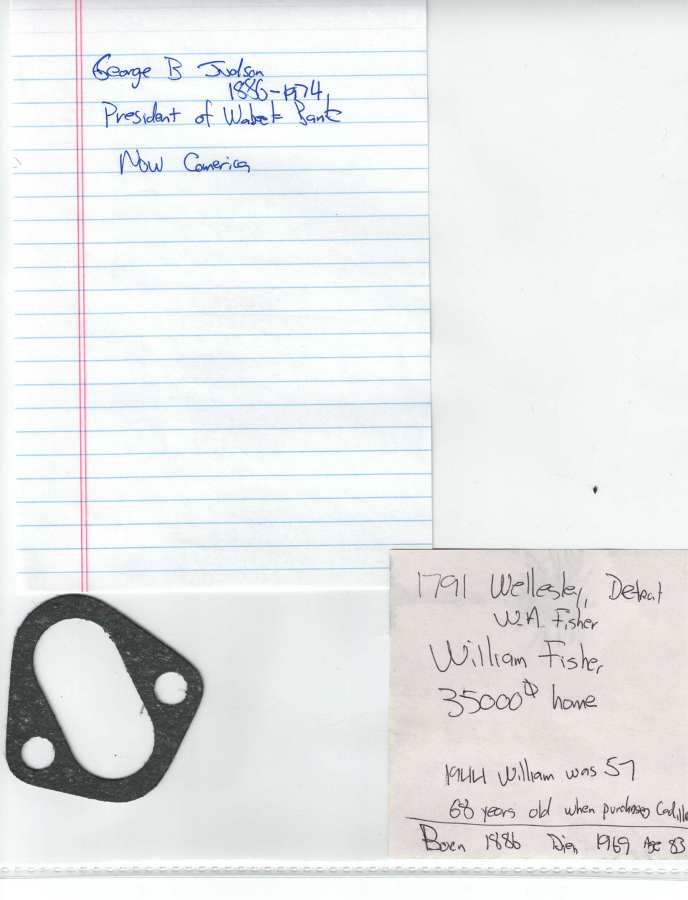 George B Judson
1886-1974
President of Wabeek Bank
Now Comerica
1791 Wellesley, Detroit
W.A. Fisher
William Fisher
35000$ home
1944 William was 57
68 years old when purchased Cadilla
Born 1886 Died 1969 Age 83